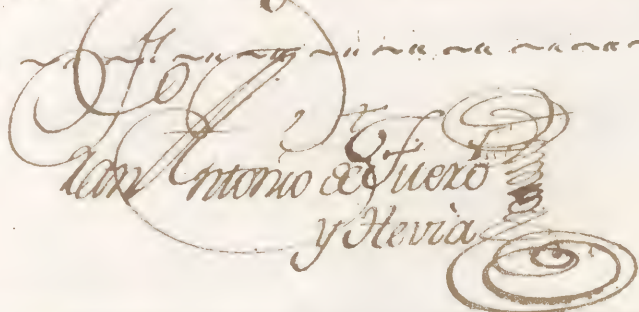 Juan Antonio de Fuero
y Hevia